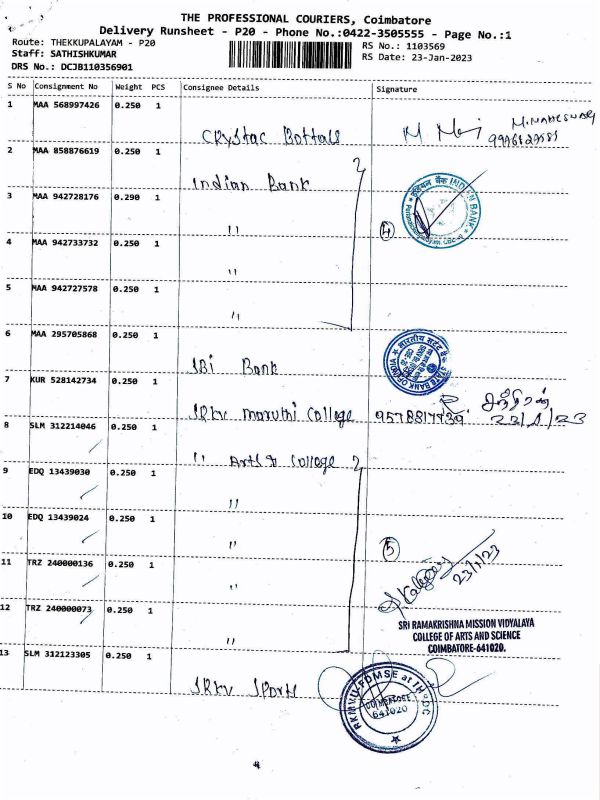 THE PROFESSIONAL COURIERS, Coimbatore
Delivery Runsheet - P20 - Phone No.:0422-3505555 - Page No.:1
Route: THEKKUPALAYAM - P20
RS No.: 1103569
Staff: SATHISHKUMAR
RS Date: 23-Jan-2023
DRS No.: DCJB110356901
S No Consignment No Weight PCS Consignee Details Signature
1 MAA 568997426 0.250 1
Crystac Bottals
2 MAA 858876619 0.250 1
Indian Bank
3 MAA 942728176 0.290 1
"
4 MAA 942733732 0.250 1
"
4
5 MAA 942727578 0.250 1
"
6 MAA 295705868 0.250 1
SBi Bank
7 KUR 528142734 0.250 1
SRKV Maruthi College 9578817739
8 SLM 312214046 0.250 1
" Arts & College
9 EDQ 13439030 0.250 1
"
10 EDQ 13439024 0.250 1
"
5
11 TRZ 240000136 0.250 1
"
23/1/23
12 TRZ 240000073 0.250 1
"
SRI RAMAKRISHNA MISSION VIDYALAYA
COLLEGE OF ARTS AND SCIENCE
COIMBATORE-641020.
13 SLM 312123305 0.250 1
SRKV Sports
COIMBATORE
641020